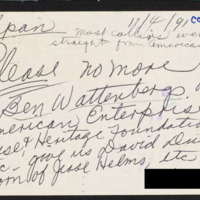 span 11/4/91 co
most callers were
straight from American
Please no more
Ben Wattenberg.
American Enterprise
Heritage Foundation
etc. give us David Du
or Jesse Helms, etc